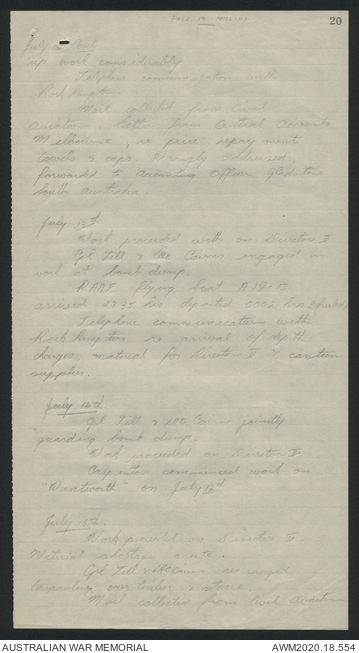 PAGE 19 MISSING
20
July
up work considerably
Telephone communication with
Rockhampton
Mail collected from Civil
aviation. Letter from Central Accounts
Melbourne, re price repayment
towels & caps. Wrongly addressed,
forwarded to Accounting Officer Gladstone
South Australia.
July 13th
Work proceeded with on Director II
Cpl Tell & AC Cairns engaged in
work at bomb dump.
RAAF flying boat A 18-13
arrived 2335 hrs, departed 0002 hrs
Telephone communication with
Rockhampton re arrival of depth
charges, material for Director II & canteen
supplies.
July 14th
Cpl Tell & Cairns jointly
guarding bomb dump.
Work proceeded on Director II
Carpenters commenced work on
"Wentworth" on July
July 15th
Work proceeded on Director II.
Material shortage acute.
Cpl Tell & Cairns
over timber & stone.
Mail collected from Civil aviation
AUSTRALIAN WAR MEMORIAL
AWM2020.18.554